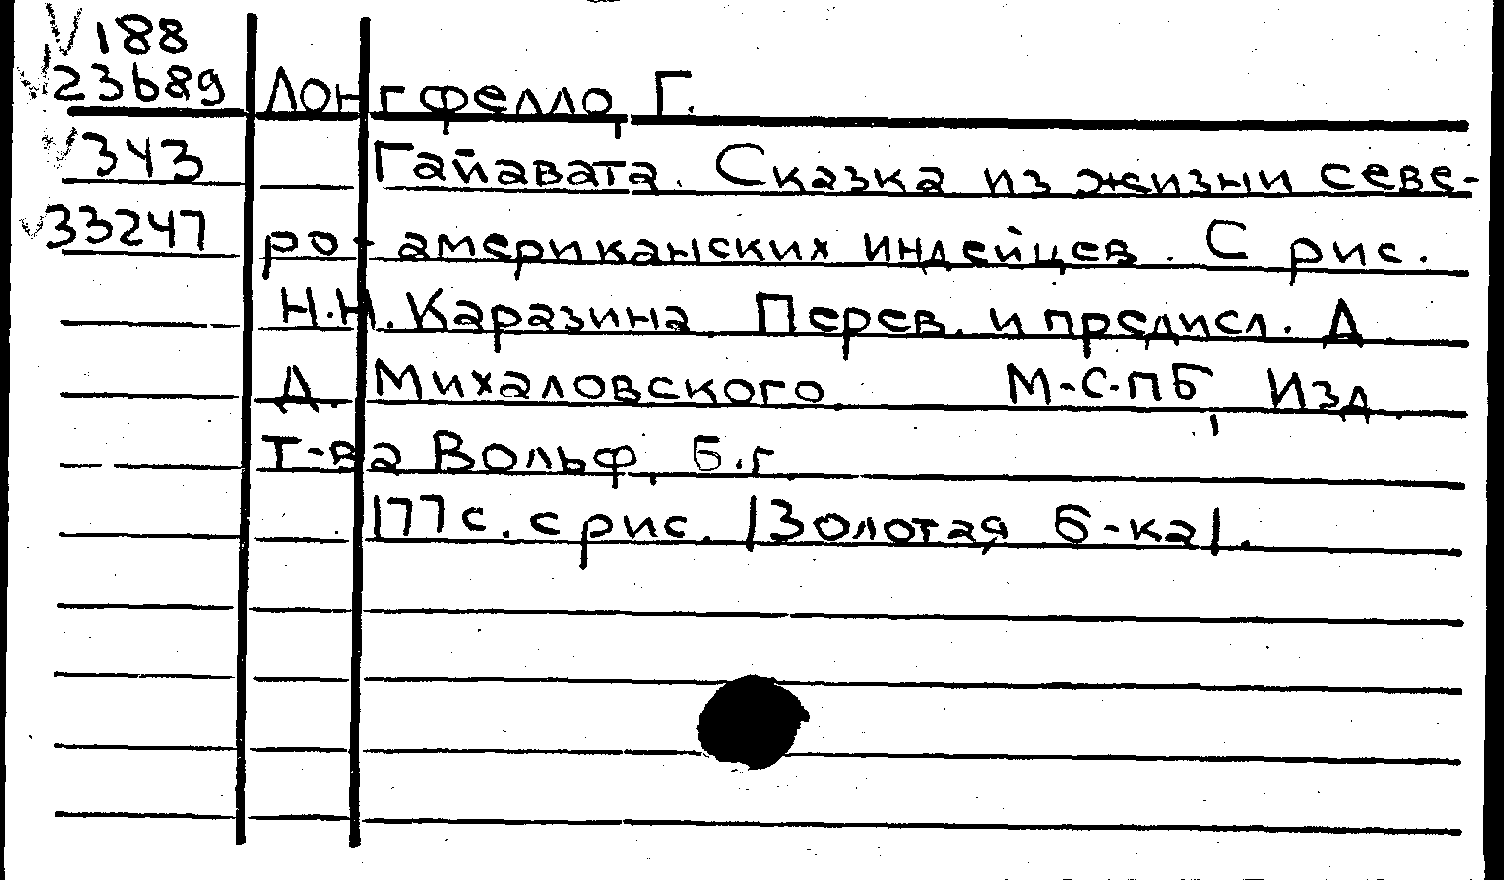 188
23689 Лонгфелло, Г.
343 Гайавата. Сказка из жизни севе-
33247 ро-американских индейцев. С рис.
Н.Н. Каразина. Перев. и предисл. Д
Д. Михаловского. М-С-ПБ, Изд.
Т-ва Вольф, б.г.
177 с. с рис. /Золотая б-ка/.